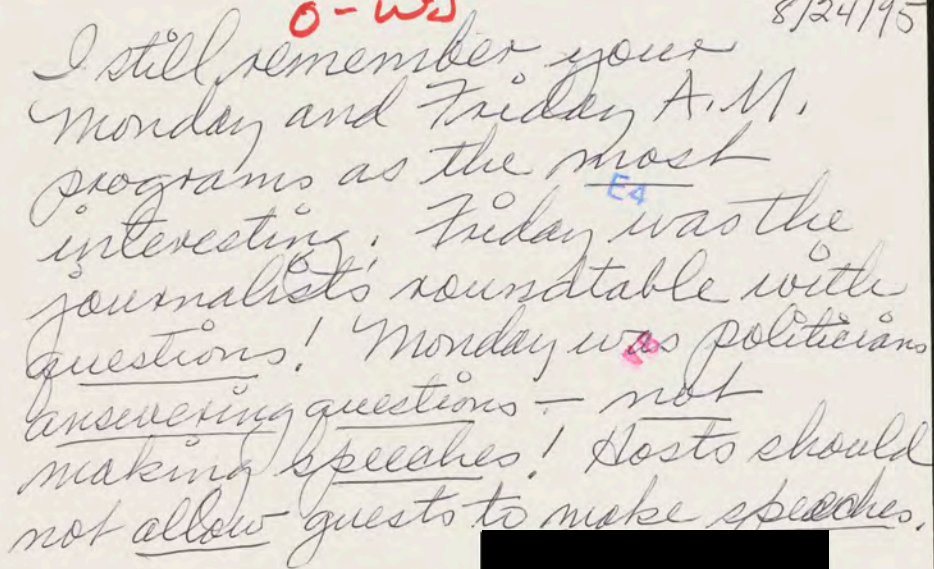 O-WJ
8/24/95
I still remember your
Monday and Friday A.M.
programs as the most
E4
interesting. Friday was the
journalists roundtable with
questions! Monday was politicians
answering questions – not
making speeches! Hosts should
not allow guests to make speeches.